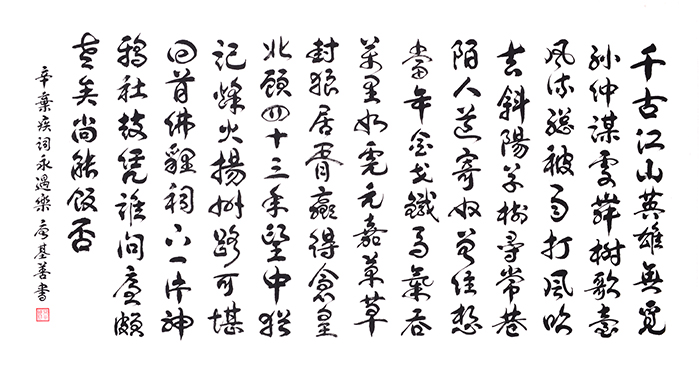 千古江山英雄無覓
孫仲謀處舞榭歌臺
風流總被雨打風吹
去斜陽草樹尋常巷
陌人道寄奴曾住想
當年金戈鐵馬氣吞
萬里如虎元嘉草草
封狼居胥贏得倉皇
北顧四十三年望中猶
記烽火揚州路可堪
回首佛貍祠下一片神
鴉社鼓憑誰問廉頗
老矣尚能飯否
辛棄疾詞永遇樂 基善書